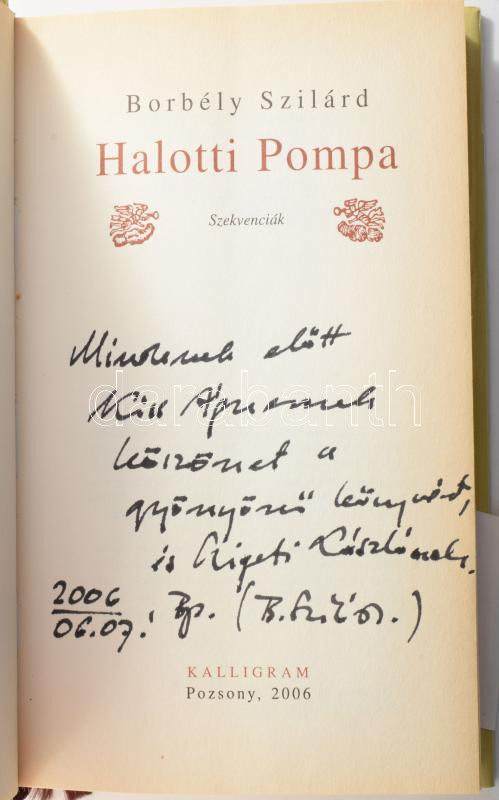 Borbély Szilárd
Halotti Pompa
Szekvenciák
Mindenek előtt
Kiss Ágnesnek
köszönet a
gyönyörű könyvért,
és Szigeti Lászlónak.
2006
06.07. Bp. (B. Szilárd.)
darabanth
KALLIGRAM
Pozsony, 2006